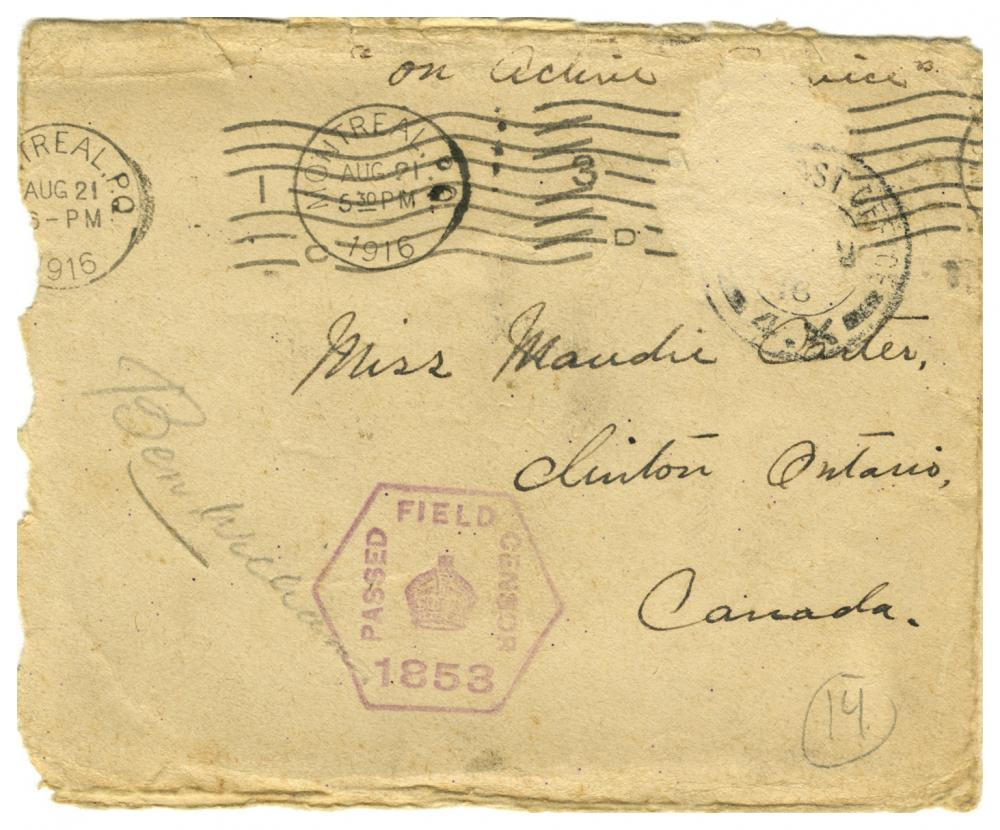 "on Active vice"
TREAL, P.Q.
AUG 21
6-PM
1916
1
C
MONTREAL, P.Q.
AUG 21
5 30 PM
1916
3
D
OST OFFICE
16
4.X
Miss Maudie Carter,
Clinton Ontario,
Canada.
Ben
PASSED FIELD CENSOR
1853
14.